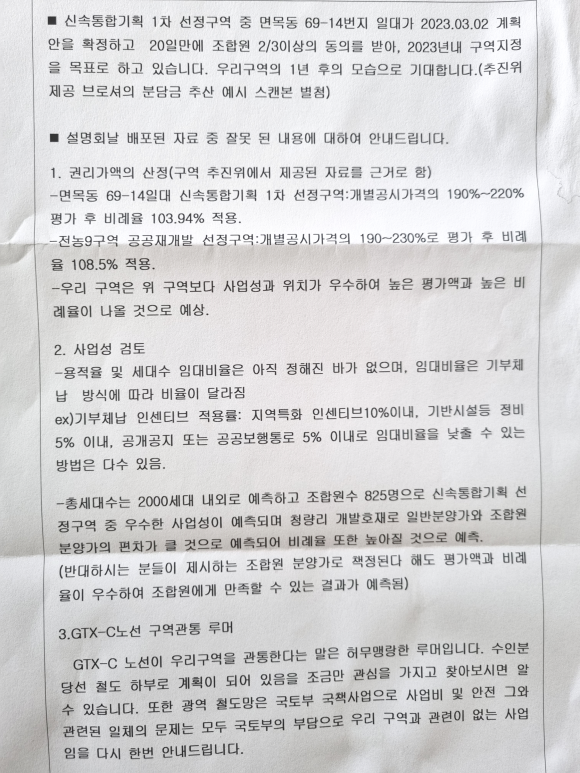 ■ 신속통합기획 1차 선정구역 중 면목동 69-14번지 일대가 2023.03.02 계획
안을 확정하고 20일만에 조합원 2/3이상의 동의를 받아, 2023년내 구역지정
을 목표로 하고 있습니다. 우리구역의 1년 후의 모습으로 기대합니다.(추진위
제공 브로셔의 분담금 추산 예시 스캔본 별첨)
■ 설명회날 배포된 자료 중 잘못 된 내용에 대하여 안내드립니다.
1. 권리가액의 산정(구역 추진위에서 제공된 자료를 근거로 함)
-면목동 69-14일대 신속통합기획 1차 선정구역:개별공시가격의 190%~220%
평가 후 비례율 103.94% 적용.
-전농9구역 공공재개발 선정구역:개별공시가격의 190~230%로 평가 후 비례
율 108.5% 적용.
-우리 구역은 위 구역보다 사업성과 위치가 우수하여 높은 평가액과 높은 비
례율이 나올 것으로 예상.
2. 사업성 검토
-용적율 및 세대수 임대비율은 아직 정해진 바가 없으며, 임대비율은 기부체
납 방식에 따라 비율이 달라짐
ex)기부체납 인센티브 적용률: 지역특화 인센티브10%이내, 기반시설등 정비
5% 이내, 공개공지 또는 공공보행통로 5% 이내로 임대비율을 낮출 수 있는
방법은 다수 있음.
-총세대수는 2000세대 내외로 예측하고 조합원수 825명으로 신속통합기획 선
정구역 중 우수한 사업성이 예측되며 청량리 개발호재로 일반분양가와 조합원
분양가의 편차가 클 것으로 예측되어 비례율 또한 높아질 것으로 예측.
(반대하시는 분들이 제시하는 조합원 분양가로 책정된다 해도 평가액과 비례
율이 우수하여 조합원에게 만족할 수 있는 결과가 예측됨)
3.GTX-C노선 구역관통 루머
GTX-C 노선이 우리구역을 관통한다는 말은 허무맹랑한 루머입니다. 수인분
당선 철도 하부로 계획이 되어 있음을 조금만 관심을 가지고 찾아보시면 알
수 있습니다. 또한 광역 철도망은 국토부 국책사업으로 사업비 및 안전 그와
관련된 일체의 문제는 모두 국토부의 부담으로 우리 구역과 관련이 없는 사업
임을 다시 한번 안내드립니다.